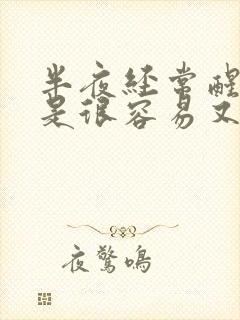 半夜経常醒
是很容易又
夜驚鳴